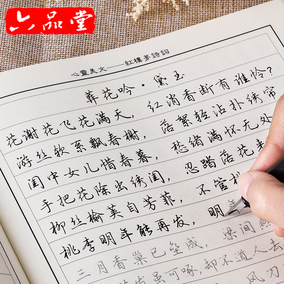 六品堂
心灵美文——红楼梦诗词
葬花吟·黛玉
花谢花飞花满天，红消香断有谁怜？
游丝软系飘春榭，落絮轻沾扑绣帘
闺中女儿惜春暮，愁绪满怀无处
手把花锄出绣闺，忍踏落花来
柳丝榆荚自芳菲，不管桃
桃李明年能再发，明
三月香巢已垒成，梁间燕
虽可啄，却不道人去
风刀